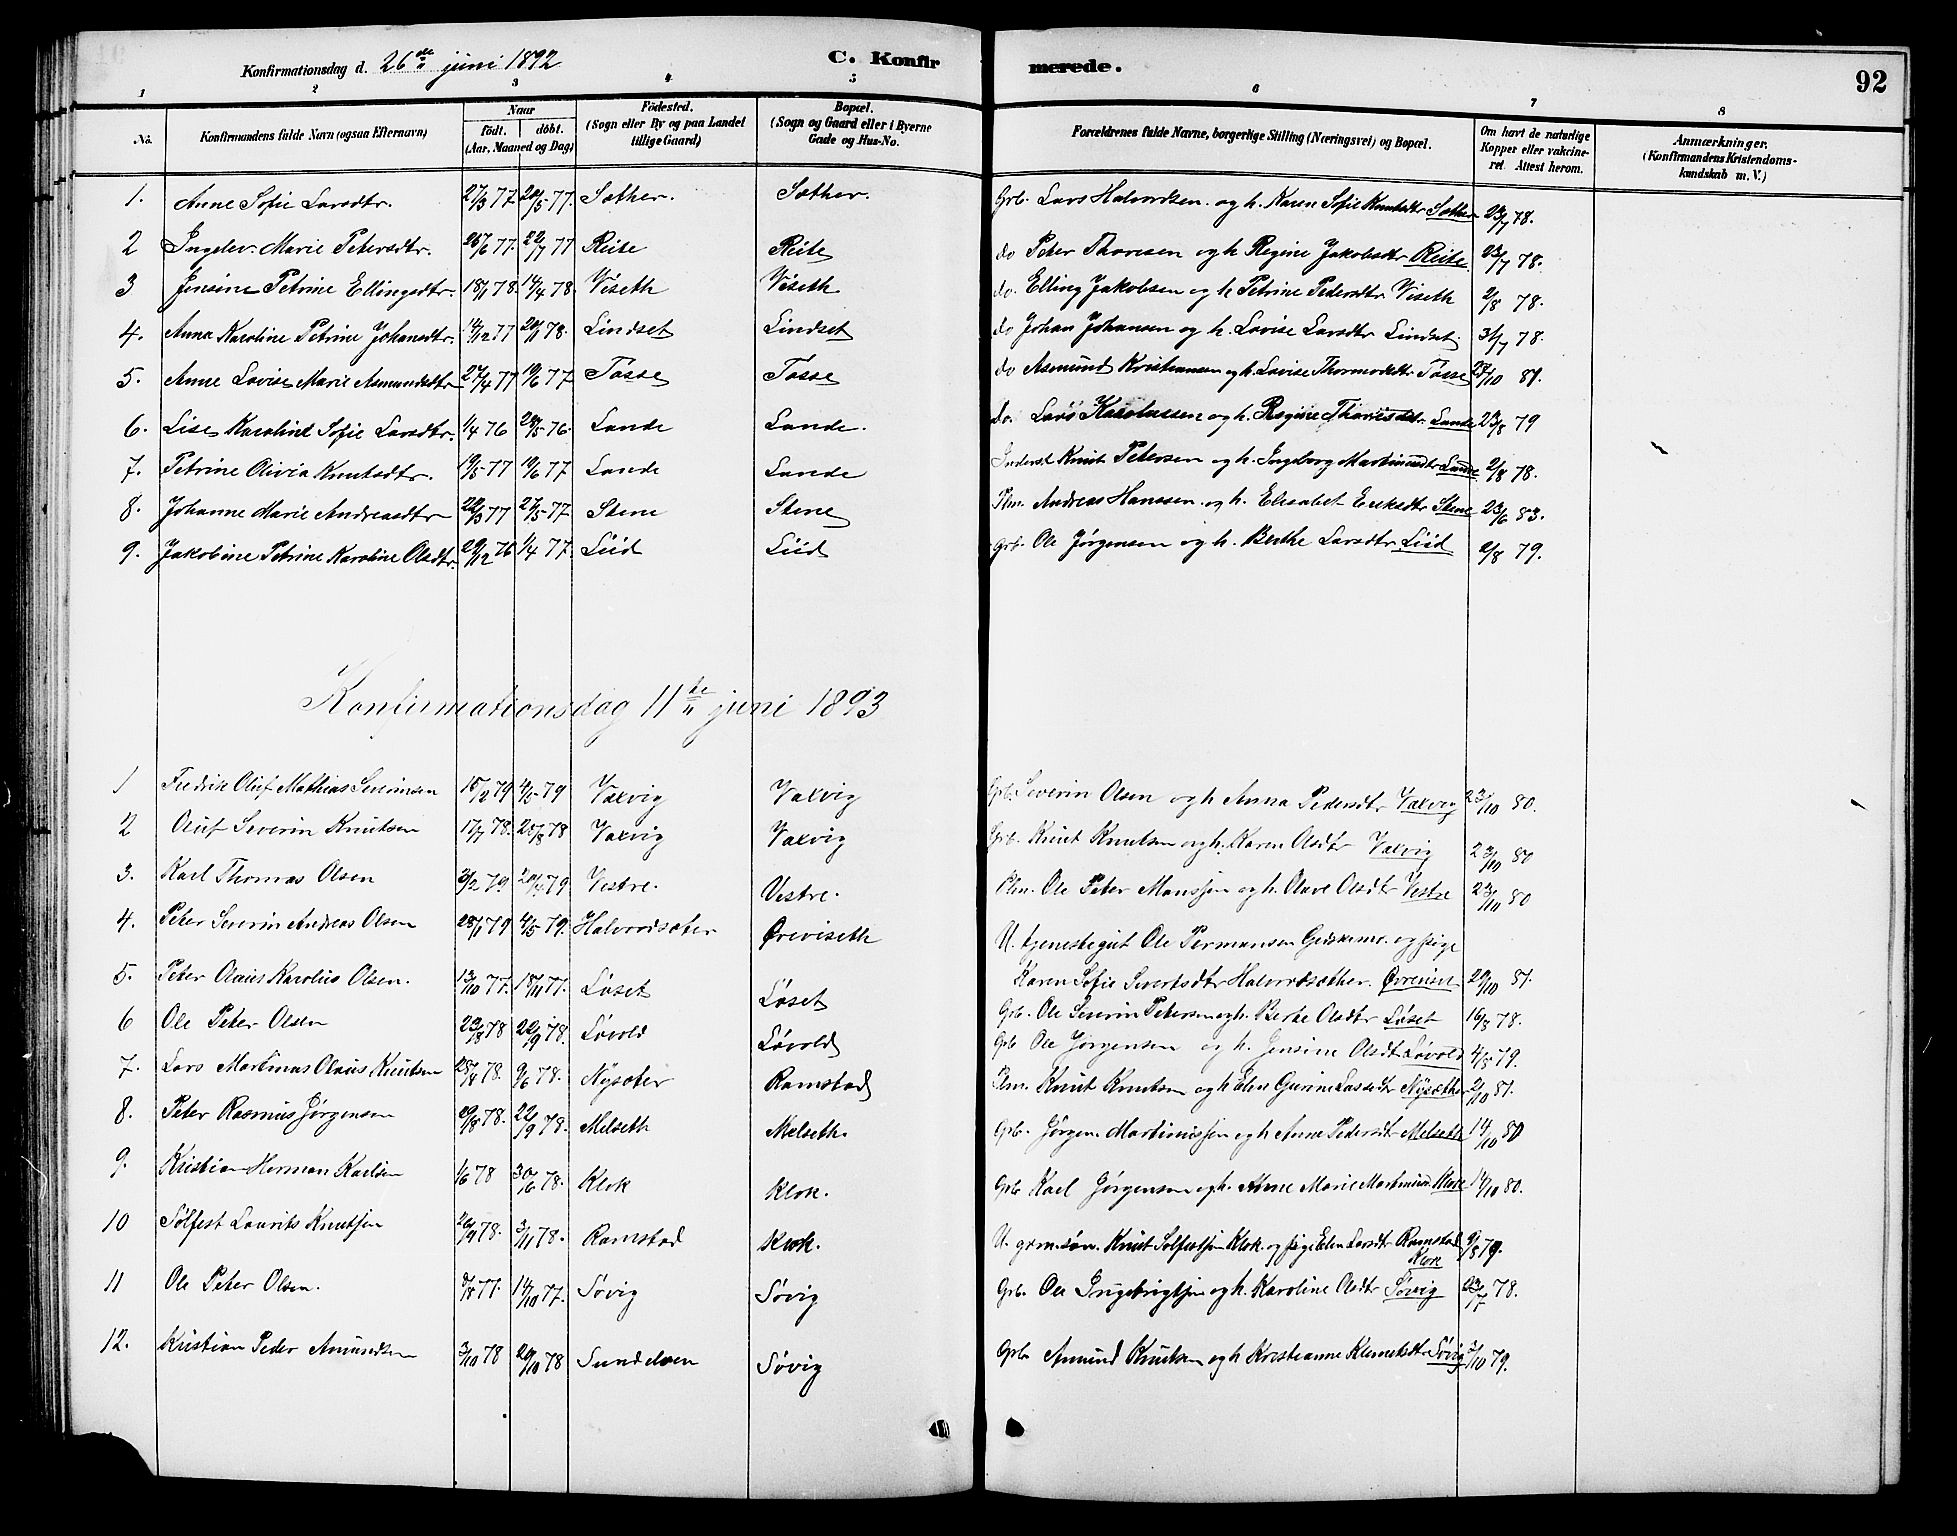 Konfirmationsdag d. 26de juni 1892 C. Konfirmerede. 92
1 2 3 4 5 6 7 8
No. Konfirmandens fulde Navn (ogsaa Efternavn) Naar født. døbt. (Aar, Maaned og Dag) Fødested. (Sogn eller By og paa Landet tillige Gaard) Bopæl. (Sogn og Gaard eller i Byerne Gade og Hus-No. Forældrenes fulde Navne, borgerlige Stilling (Næringsvei) og Bopæl. Om havt de naturlige Kopper eller vakcineret Attest herom. Anmærkninger. (Konfirmandens Kristendomskundskab m. V.)
1. Anne Sofie Larsdtr. 27/3 77. 20/5 77. Sæther. Sæther. Grb. Lars Halvordsen og h. Karen Sofie Knutsdtr Sæther 23/7 78.
2 Ingelev Marie Petersdtr. 26/6 77. 22/7 77 Reite Reite do Peter Thoresen og h Regine Jakobsdtr Reite 23/7 78.
3 Jensine Petrine Ellingsdtr. 18/1 78. 14/4 78. Viseth Viseth do. Elling Jakobsen og h Petrine Pedersdtr Viseth 2/8 78.
4. Anna Karoline Petrine Johansdtr. 14/12 77 20/1 78. Lindset Lindset do Johan Johansen og h. Lovise Larsdtr Lindset. 31/7 78.
5. Anne Lovise Marie Asmundsdtr 27/4 77 10/6 77. Tosse Tosse do Asmund Kristiansen og h. Lovise Thormodsdtr Tosse 23/10 81.
6. Lise Karoline Sofie Larsdtr. 1/4 76 28/5 76. Lande Lande. do. Lars Karolussen og h. Regine Thoresdtr. Lande 23/8 79
7. Petrine Olivia Knutsdtr. 19/5 77 10/6 77. Lande Lande Inderst Knut Petersen og h. Ingeborg Martinusdtr Lande 2/8 78.
8. Johanne Marie Andreasdtr 22/3 77 27/5 77. Stene Stene Plm. Andreas Hanssen og h. Elisabet Eriksdtr Stene 23/6 83.
9. Jakobine Petrine Karoline Olsdtr. 29/12 76 1/4 77. Liid Liid Grb. Ole Jørgensen og h. Berthe Larsdtr Liid 2/8 79.
Konfirmationsdag 11te juni 1893
1 Fredrik Oluf Mathias Severinsen 15/2 79 4/5 79 Vaxvig Vaxvig Grb. Severin Olsen og h Anna Pedersdtr Vaxvig 23/10 80.
2 Oluf Severin Knutsen 17/7 78. 25/8 78 Vaxvig Vaxvig Grb. Knut Knutsen og h. Karen Olsdtr Vaxvig 23/10 80
3. Karl Thomas Olsen 3/2 79. 20/4 79 Vestre. Vestre. Plm. Ole Peter Monssen og h. Olave Olsdtr Vestre 23/10 80
4. Peter Severin Andreas Olsen 28/1 79 4/5 79. Halvordsæter Øreviseth U. tjenestegut Ole Permansen og pige
Karen Sofie Sivertsdtr Halvordsæther. 29/10 81.
5. Peter Olaus Karolus Olsen. 13/10 77. 18/11 77. Løset Løset Grb. Ole Severin Petersen og h. Berte Olsdtr Løset 16/8 78.
6 Ole Peter Olsen 23/8 78 22/9 78. Løvold Løvold Grb Ole Jørgensen og h. Jensine Olsdtr Løvold 4/5 79.
7. Lars Martinus Olaus Knutsen 25/4 78. 9/6 78. Nysæter Ramstad Plm. Knut Knutsen og h Elen Gurine Lassedtr Nysæther 2/10 81.
8. Peter Rasmus Jørgensen 29/8 78. 22/9 78. Melseth Melseth. Grb. Jørgen Martinussen og h Anne Pedersdtr Melseth 14/10 80
9. Kristian Herman Karlsen 1/6 78 30/6 78. Klok Klok. Grb Karl Jørgensen og h. Anne Marie Martinusd. Klok 14/10 80.
10 Sølfest Laurits Knutsen 26/9 78. 3/11 78. Ramstad Klok. U. grm.søn. Knut Solfestsen Klok. og pige Elen Larsdtr Ramstad Klok 9/8 79.
11 Ole Peter Olsen. 8/8 77. 14/10 77. Søvig Søvig Grb. Ole Ingebrigtsen og h. Karoline Olsdtr Søvig 23/7 78.
12. Kristian Peder Amundsen 3/10 78 20/10 78 Sundelven Søvig Grb Amund Knutsen og h Kristianne Klemetsdtr Søvig 3/10 79.